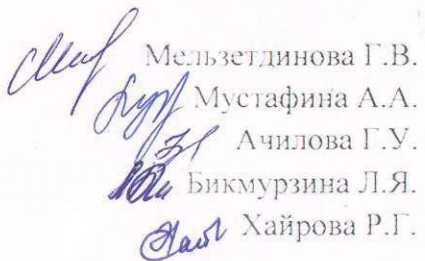 Мельзетдинова Г.В.
Мустафина А.А.
Ачилова Г.У.
Бикмурзина Л.Я.
Хайрова Р.Г.